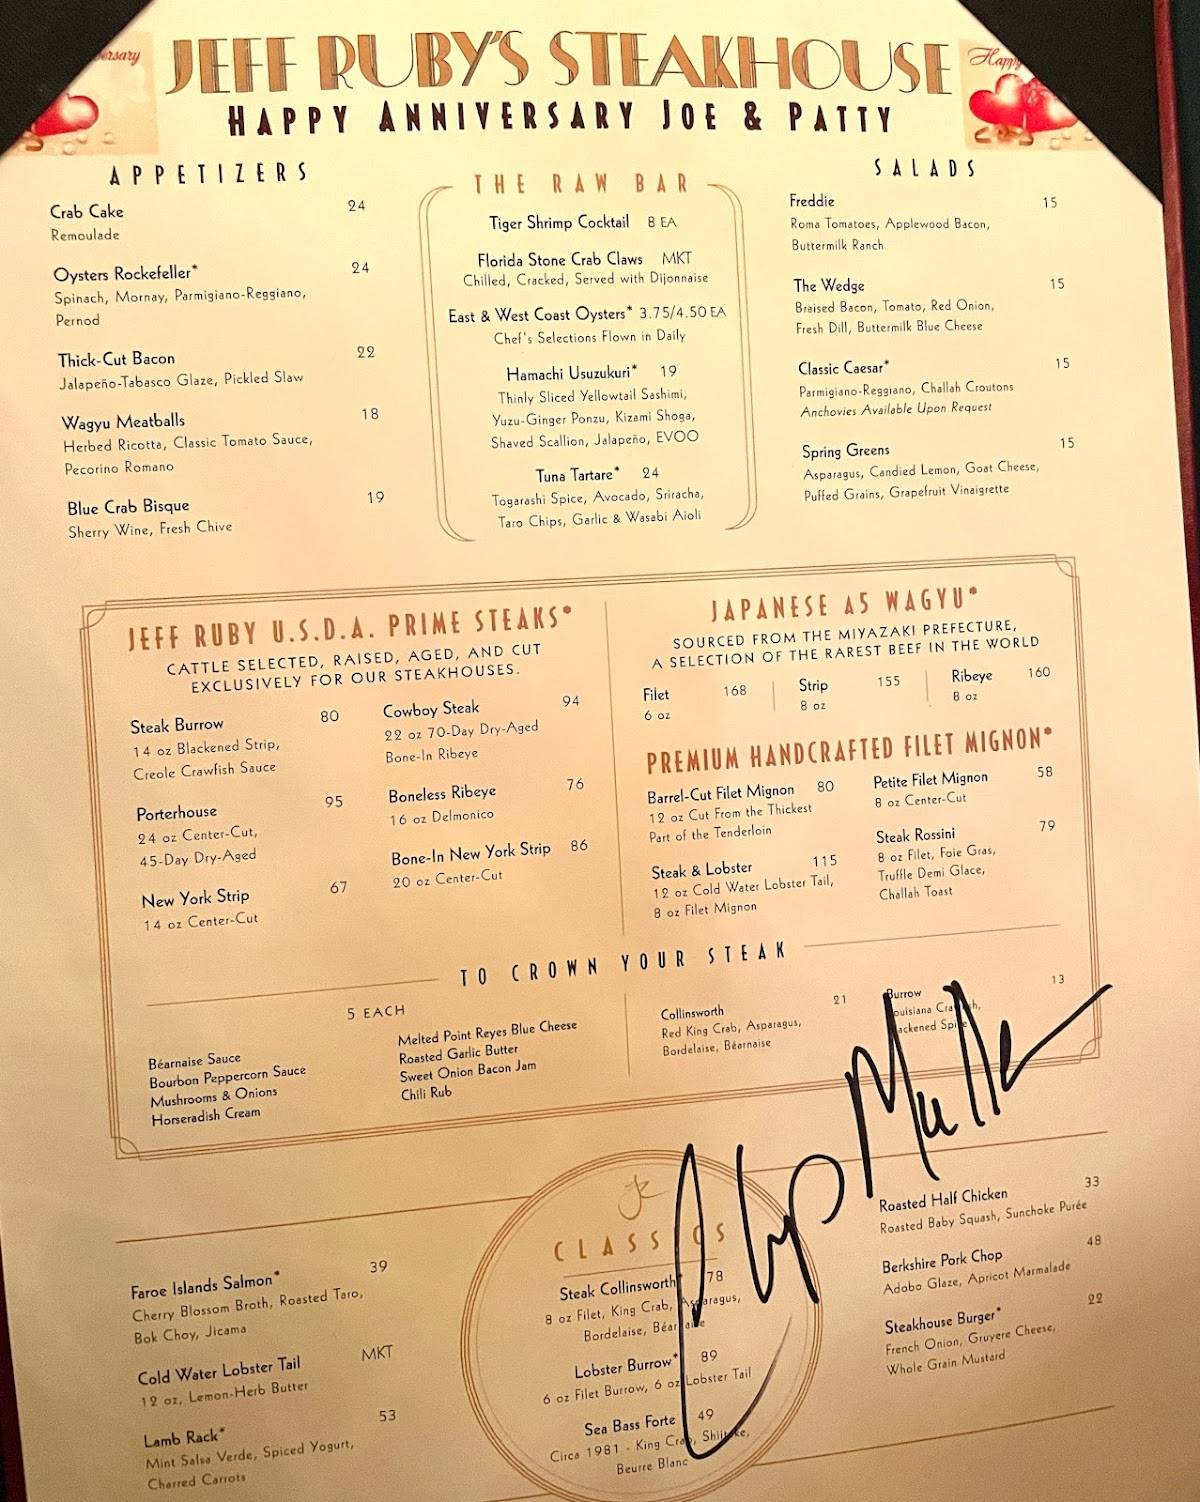 JEFF RUBY'S STEAKHOUSE
HAPPY ANNIVERSARY JOE & PATTY
Happy
APPETIZERS
Crab Cake 24
Remoulade
Oysters Rockefeller* 24
Spinach, Mornay, Parmigiano-Reggiano,
Pernod
Thick-Cut Bacon 22
Jalapeño-Tabasco Glaze, Pickled Slaw
Wagyu Meatballs 18
Herbed Ricotta, Classic Tomato Sauce,
Pecorino Romano
Blue Crab Bisque 19
Sherry Wine, Fresh Chive
THE RAW BAR
Tiger Shrimp Cocktail 8 EA
Florida Stone Crab Claws MKT
Chilled, Cracked, Served with Dijonnaise
East & West Coast Oysters* 3.75/4.50 EA
Chef's Selections Flown in Daily
Hamachi Usuzukuri* 19
Thinly Sliced Yellowtail Sashimi,
Yuzu-Ginger Ponzu, Kizami Shoga,
Shaved Scallion, Jalapeño, EVOO
Tuna Tartare* 24
Togarashi Spice, Avocado, Sriracha,
Taro Chips, Garlic & Wasabi Aioli
SALADS
Freddie 15
Roma Tomatoes, Applewood Bacon,
Buttermilk Ranch
The Wedge 15
Braised Bacon, Tomato, Red Onion,
Fresh Dill, Buttermilk Blue Cheese
Classic Caesar* 15
Parmigiano-Reggiano, Challah Croutons
Anchovies Available Upon Request
Spring Greens 15
Asparagus, Candied Lemon, Goat Cheese,
Puffed Grains, Grapefruit Vinaigrette
JEFF RUBY U.S.D.A. PRIME STEAKS*
CATTLE SELECTED, RAISED, AGED, AND CUT
EXCLUSIVELY FOR OUR STEAKHOUSES.
Steak Burrow 80
14 oz Blackened Strip,
Creole Crawfish Sauce
Porterhouse 95
24 oz Center-Cut,
45-Day Dry-Aged
New York Strip 67
14 oz Center-Cut
Cowboy Steak 94
22 oz 70-Day Dry-Aged
Bone-In Ribeye
Boneless Ribeye 76
16 oz Delmonico
Bone-In New York Strip 86
20 oz Center-Cut
JAPANESE A5 WAGYU*
SOURCED FROM THE MIYAZAKI PREFECTURE,
A SELECTION OF THE RAREST BEEF IN THE WORLD
Filet 168
6 oz
Strip 155
8 oz
Ribeye 160
8 oz
PREMIUM HANDCRAFTED FILET MIGNON*
Barrel-Cut Filet Mignon 80
12 oz Cut From the Thickest
Part of the Tenderloin
Steak & Lobster 115
12 oz Cold Water Lobster Tail,
8 oz Filet Mignon
Petite Filet Mignon 58
8 oz Center-Cut
Steak Rossini 79
8 oz Filet, Foie Gras,
Truffle Demi Glace,
Challah Toast
TO CROWN YOUR STEAK
5 EACH
Béarnaise Sauce
Bourbon Peppercorn Sauce
Mushrooms & Onions
Horseradish Cream
Melted Point Reyes Blue Cheese
Roasted Garlic Butter
Sweet Onion Bacon Jam
Chili Rub
Collinsworth 21
Red King Crab, Asparagus,
Bordelaise, Béarnaise
Burrow 13
Louisiana Crawfish,
Blackened Spice
Faroe Islands Salmon* 39
Cherry Blossom Broth, Roasted Taro,
Bok Choy, Jicama
Cold Water Lobster Tail MKT
12 oz, Lemon-Herb Butter
Lamb Rack* 53
Mint Salsa Verde, Spiced Yogurt,
Charred Carrots
CLASSICS
Steak Collinsworth* 78
8 oz Filet, King Crab, Asparagus,
Bordelaise, Béarnaise
Lobster Burrow* 89
6 oz Filet Burrow, 6 oz Lobster Tail
Sea Bass Forte 49
Circa 1981 - King Crab, Shiitake,
Beurre Blanc
Roasted Half Chicken 33
Roasted Baby Squash, Sunchoke Purée
Berkshire Pork Chop 48
Adobo Glaze, Apricot Marmalade
Steakhouse Burger* 22
French Onion, Gruyere Cheese,
Whole Grain Mustard